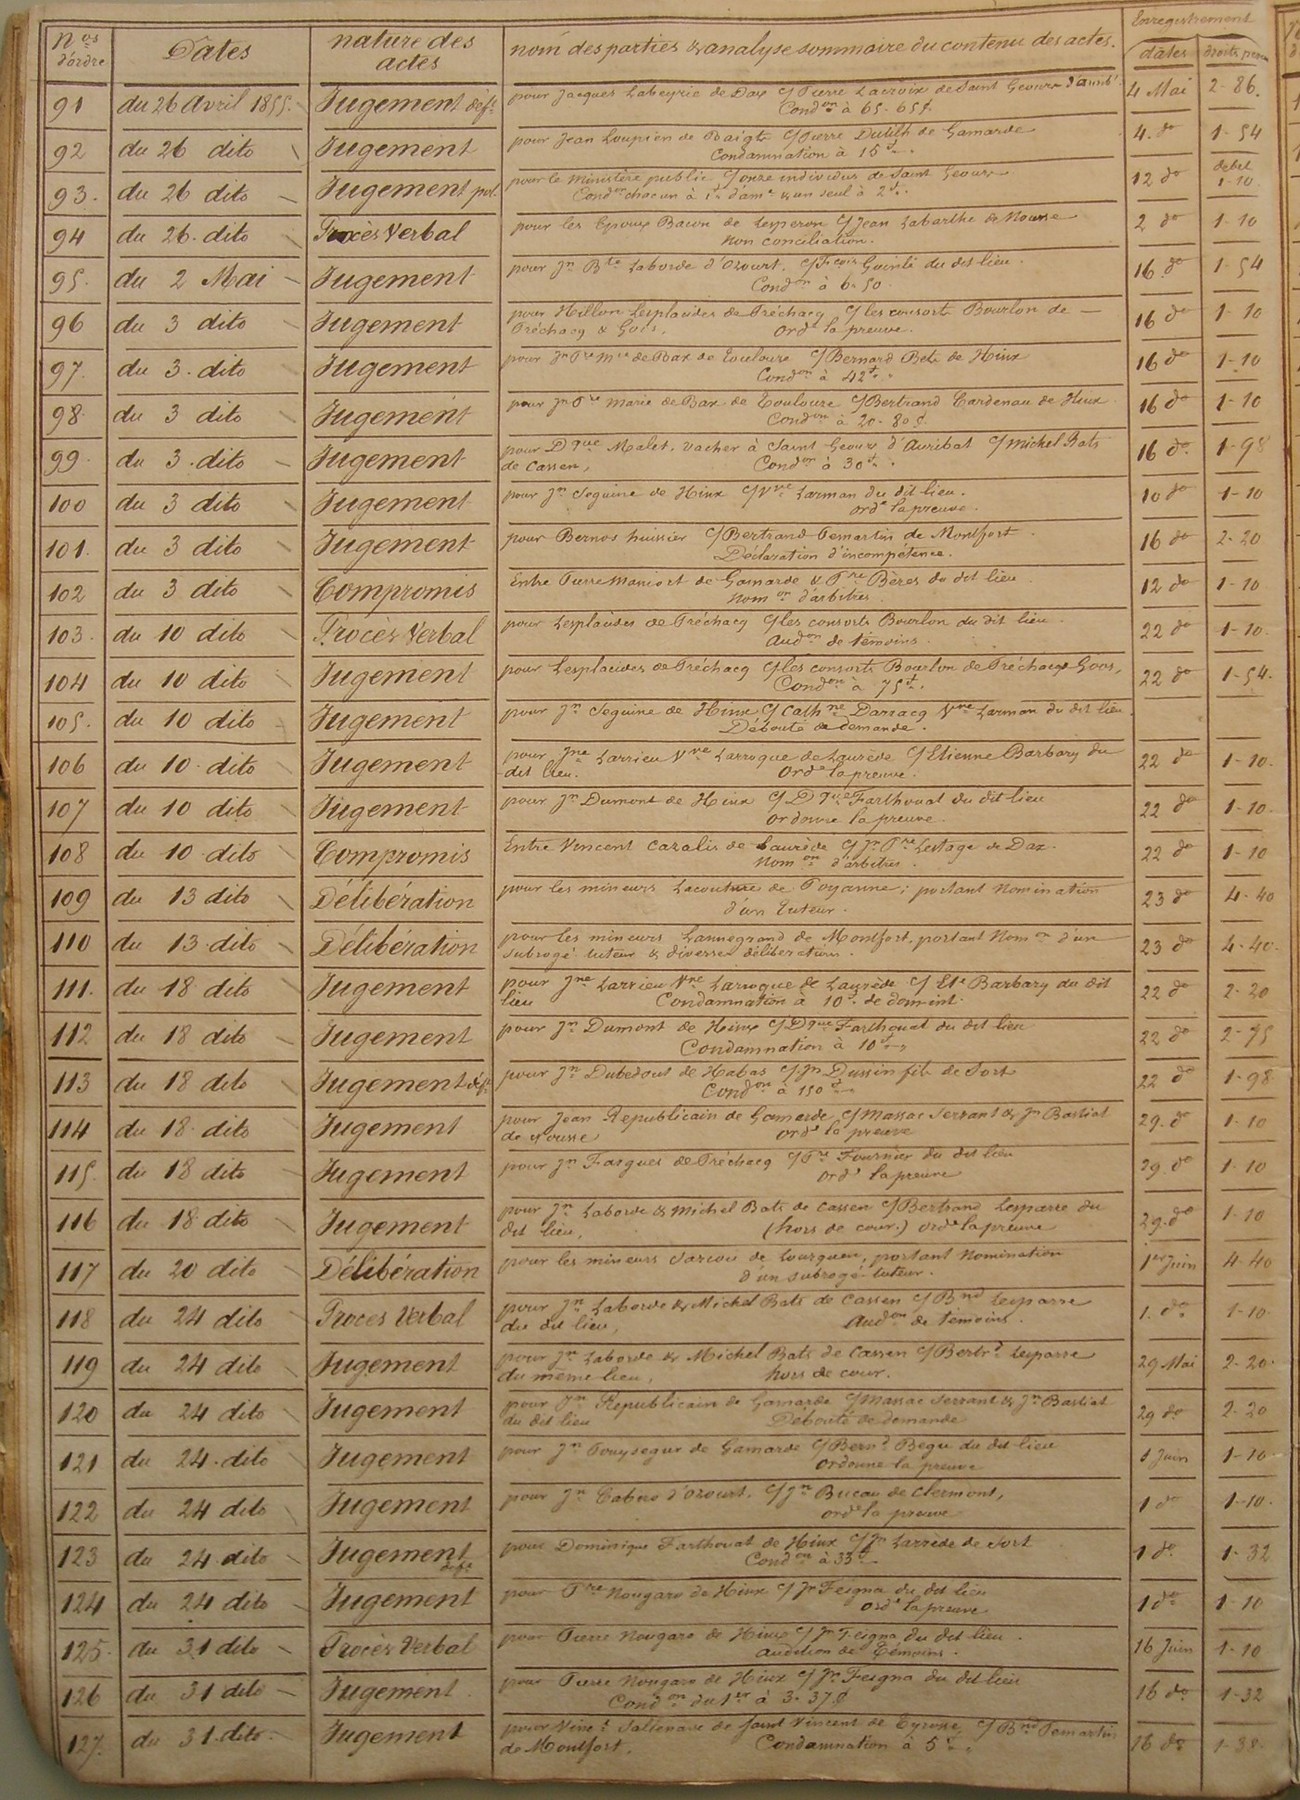 Nos d'ordre | Dates | nature des actes | nom des parties & analyse sommaire du contenu des actes. | Enregistrement
dates | droits perçus
91 | du 26 Avril 1855. | Jugement déft | pour Jacques Labeyrie de Dax c/ Pierre Lacroix de Saint Geours d'aurib! | 4 Mai | 2-86.
Condon à 65-65 f.
92 | du 26 dito | Jugement | pour Jean Loupien de Baigts c/ Pierre Dutilh de Gamarde | 4. do | 1-54
Condamnation à 15 f.
93. | du 26 dito | Jugement pol | pour le Ministère public c/ onze individus de Saint Geours | 12 do | debet 1-10.
Condon chacun à 1 f. d'ame & un seul à 2 f.
94 | du 26. dito | Procès Verbal | pour les Epoux Bacon de c/ Jean Labarthe de Nousse | 2 do | 1-10
Non conciliation.
95. | du 2 Mai | Jugement | pour Jn Bte Laborde d'Ozourt. c/ Fcois du dit lieu. | 16. do | 1-54
Condon à 6-50.
96 | du 3 dito | Jugement | pour Hillon Lesplasides de Préchacq c/ les consorts Bourlon de | 16 do | 1-10
Préchacq & Goos, ordt la preuve.
97. | du 3. dito | Jugement | pour Jn Pre Mie de Bax de Toulouse c/ Bernard Bats de Hinx | 16 do | 1-10
Condon à 42 f.
98. | du 3 dito | Jugement | pour Jn Pre Marie de Bax de Toulouse c/ Bertrand Cardenau de Hinx. | 16 do | 1-10
Condon à 20-80 c.
99. | du 3. dito | Jugement | pour Dque Malet, vacher à Saint Geours d'Auribat c/ Michel Bats | 16 do. | 1-98
de Cassen, Condon à 30 f.
100 | du 3 dito | Jugement | pour Jn Seguine de Hinx c/ Vve Larman du dit lieu. | 10 do | 1-10
ordt la preuve.
101. | du 3 dito | Jugement | pour Bernos huissier c/ Bertrand Demartin de Montfort. | 16 do | 2-20
Déclaration d'incompétence.
102 | du 3 dito | Compromis | Entre Pierre Maniort de Gamarde & Pre Bères du dit lieu | 12 do | 1-10
Nomon d'arbitres.
103. | du 10 dito | Procès Verbal | pour Lesplasides de Préchacq c/ les consorts Bourlon du dit lieu. | 22 do | 1-10.
Audon de témoins.
104 | du 10 dito | Jugement | pour Lesplasides de Préchacq c/ les consorts Bourlon de Préchacq & Goos, | 22 do | 1-54.
Condon à 75 f.
105. | du 10 dito | Jugement | pour Jn Seguine de Hinx c/ Cathne Darracq Vve Larman du dit lieu.
Débouté de demande.
106 | du 10. dito | Jugement | pour Jne Larrieu Vve Larroque de Laurède c/ Etienne Barbary du | 22 do | 1-10.
dit lieu. ordt la preuve.
107 | du 10 dito | Jugement | pour Jn Dumont de Hinx c/ Dque Farthouat du dit lieu | 22 do | 1-10.
ordonne la preuve.
108 | du 10 dito | Compromis | Entre Vincent Cazalis de Laurède c/ Jn Pre Lestage de Dax. | 22 do | 1-10
Nomon d'arbitres.
109 | du 13 dito | Délibération | pour les mineurs Lacouture de Poyanne; portant Nomination | 23 do | 4-40
d'un tuteur.
110 | du 13. dito | Délibération | pour les mineurs Lannegrand de Montfort, portant Nomon d'un | 23 do | 4-40.
subrogé tuteur & diverses délibérations.
111. | du 18 dito | Jugement | pour Jne Larrieu Vve Larroque de Laurède c/ Ete Barbary du dit | 22 do | 2-20
lieu Condamnation à 10 f. de dom. int.
112 | du 18 dito | Jugement | pour Jn Dumont de Hinx c/ Dque Farthouat du dit lieu | 22 do | 2-75
Condamnation à 10 f.
113 | du 18 dito | Jugement déft | pour Jn Dubedout de Habas c/ Jn Dussin fils de Sort | 22 do | 1-98
Condon à 150 f.
114 | du 18. dito | Jugement | pour Jean Republicain de Gamarde c/ Massac Serrant & Jn Bastiat | 29. do | 1-10
de Nousse ordt la preuve
115. | du 18 dito | Jugement | pour Jn Fargues de Préchacq c/ Pre Fournier du dit lieu | 29. do | 1-10
ordt la preuve
116 | du 18 dito | Jugement | pour Jn Laborde & Michel Bats de Cassen c/ Bertrand Lesparre du | 29. do | 1-10
dit lieu, (hors de cour.) ordt la preuve
117 | du 20 dito | Délibération | pour les mineurs Sarcou de Lourquen, portant Nomination | 1er Juin | 4-40
d'un subrogé-tuteur.
118 | du 24 dito | Procès Verbal | pour Jn Laborde & Michel Bats de Cassen c/ Bnd Lesparre | 1. do | 1-10.
du dit lieu, Audon de témoins.
119 | du 24 dito | Jugement | pour Jn Laborde & Michel Bats de Cassen c/ Bertrd Lesparre | 29 Mai | 2-20.
du même lieu, hors de cour.
120 | du 24 dito | Jugement | pour Jn Republicain de Gamarde c/ Massac Serrant & Jn Bastiat | 29 do | 2-20
du dit lieu Débouté de demande
121 | du 24. dito | Jugement | pour Jn Pouysegur de Gamarde c/ Bernd Begu du dit lieu | 1 Juin | 1-10
ordonne la preuve
122 | du 24 dito | Jugement | pour Jn Cabiro d'Ozourt. c/ Jn Bucau de Clermont, | 1 do | 1-10.
ordt la preuve
123 | du 24 dito | Jugement déft | pour Dominique Farthouat de Hinx c/ Jn Larrède de Sort | 1 do. | 1-32
Condon à 33 f.
124 | du 24 dito | Jugement | pour Pre Nougaro de Hinx c/ Jn Feigna du dit lieu | 1 do | 1-10
ordt la preuve
125. | du 31 dito | Procès Verbal | pour Pierre Nougaro de Hinx c/ Jn Feigna du dit lieu. | 16 Juin | 1-10
Audition de témoins.
126 | du 31 dito | Jugement | pour Pierre Nougaro de Hinx c/ Jn Feigna du dit lieu | 16 do | 1-32
Condon du 1er à 3-37 c.
127. | du 31. dito. | Jugement | pour Vinct Sallenave de Saint Vincent de Tyrosse c/ Bnd Demartin | 16 do | 1-38.
de Montfort, Condamnation à 5 f.